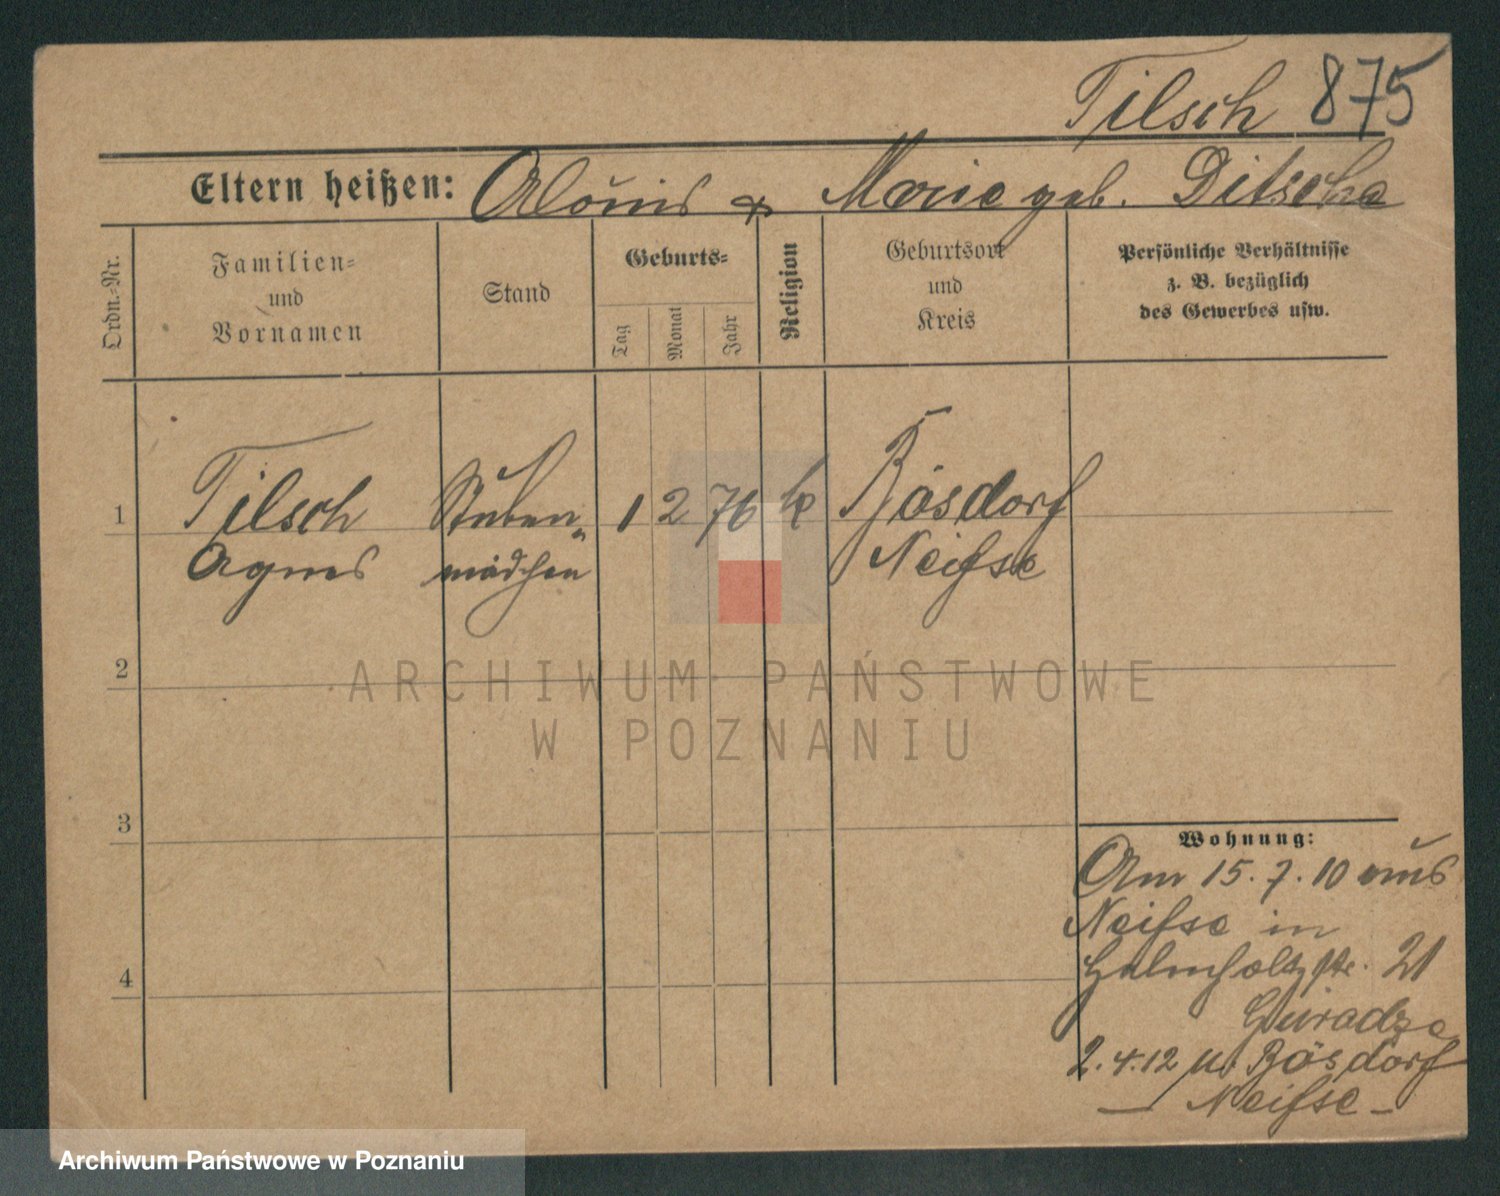 Tilsch 875
Eltern heißen: Alois & Marie geb. Ditsche
Ordn.-Nr.
Familien-
und
Vornamen
Stand
Geburts-
Tag
Monat
Jahr
Religion
Geburtsort
und
Kreis
Persönliche Verhältnisse
z. B. bezüglich
des Gewerbes usw.
1 Tilsch Stuben- 1 2 76 k Bösdorf
Agnes mädchen Neisse
2
ARCHIWUM PAŃSTWOWE
W POZNANIU
3
Wohnung:
Am 15.7.10 aus
Neisse in
Helmholtzstr. 21
2.4.12 n. Bösdorf
4
— Neisse —
Archiwum Państwowe w Poznaniu